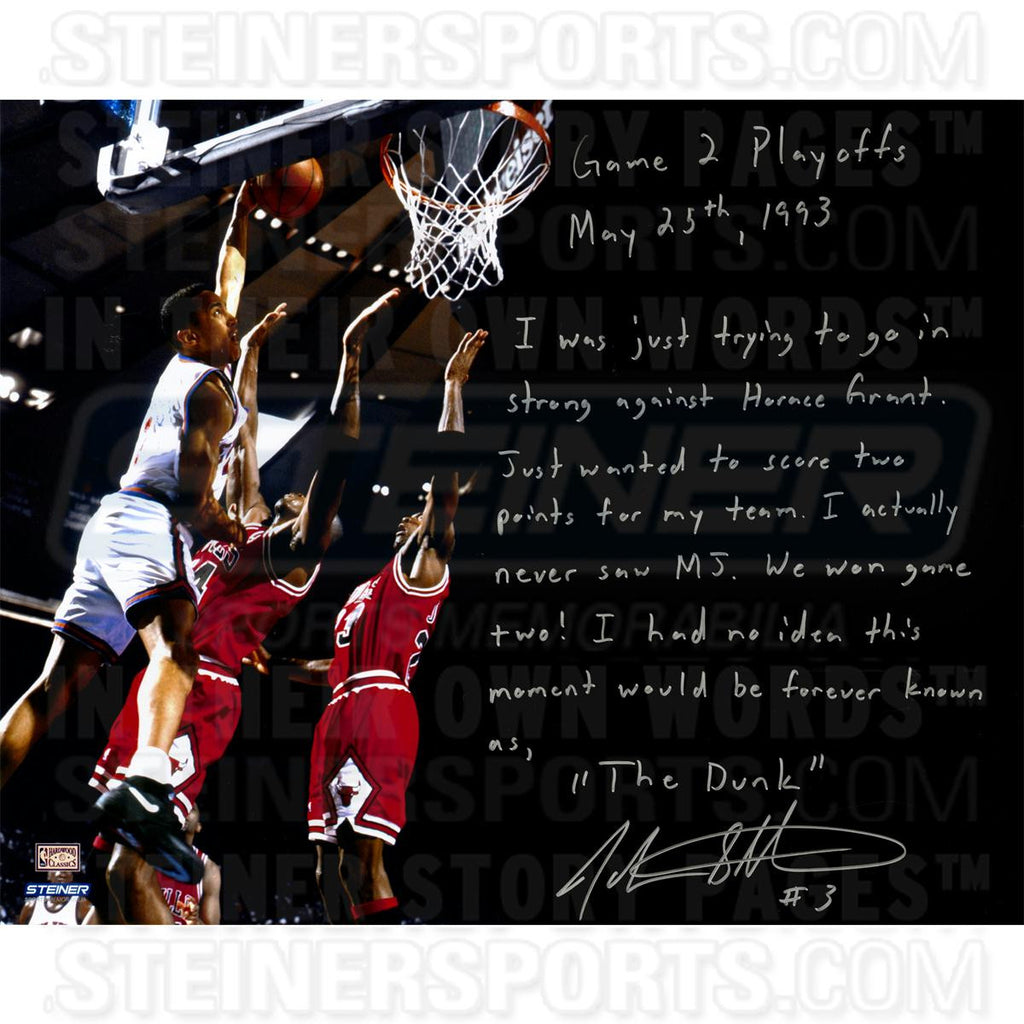 .STEINERSPORTS.COM
STEINER STORY PAGES™
STEINERSPORTS.COM
IN THEIR OWN WORDS™
STEINER
SPORTS MEMORABILIA
IN THEIR OWN WORDS™
STEINERSPORTS.COM
STEINER STORY PAGES™
Game 2 Playoffs
May 25th, 1993
I was just trying to go in
strong against Horace Grant.
Just wanted to score two
points for my team. I actually
never saw MJ. We won game
two! I had no idea this
moment would be forever known
as,
"The Dunk"
#3
HARDWOOD
CLASSICS
STEINER
.STEINERSPORTS.COM